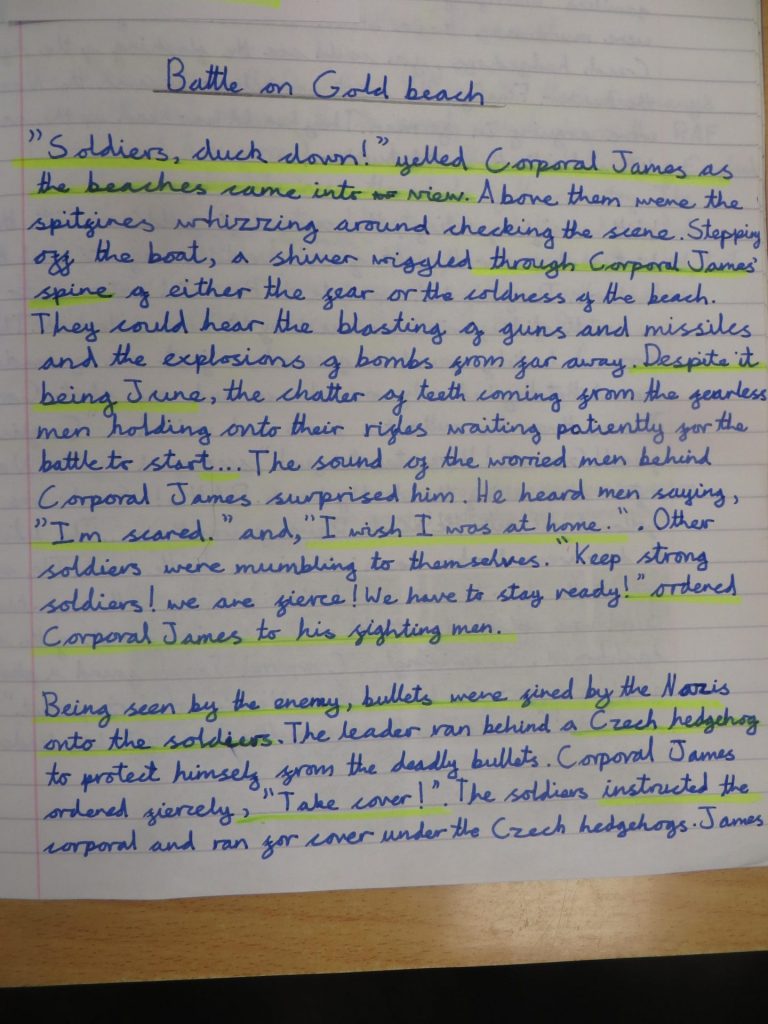 Battle on Gold beach
"Soldiers, duck down!" yelled Corporal James as
the beaches came into view. Above them were the
spitfires whizzing around checking the scene. Stepping
off the boat, a shiver wiggled through Corporal James'
spine of either the fear or the coldness of the beach.
They could hear the blasting of guns and missiles
and the explosions of bombs from far away. Despite it
being June, the chatter of teeth coming from the fearless
men holding onto their rifles waiting patiently for the
battle to start... The sound of the worried men behind
Corporal James surprised him. He heard men saying,
"I'm scared." and, "I wish I was at home.". Other
soldiers were mumbling to themselves. "Keep strong
soldiers! we are fierce! We have to stay ready!" ordered
Corporal James to his fighting men.
Being seen by the enemy, bullets were fired by the Nazis
onto the soldiers. The leader ran behind a Czech hedgehog
to protect himself from the deadly bullets. Corporal James
ordered fiercely, "Take cover!". The soldiers instructed the
corporal and ran for cover under the Czech hedgehogs. James